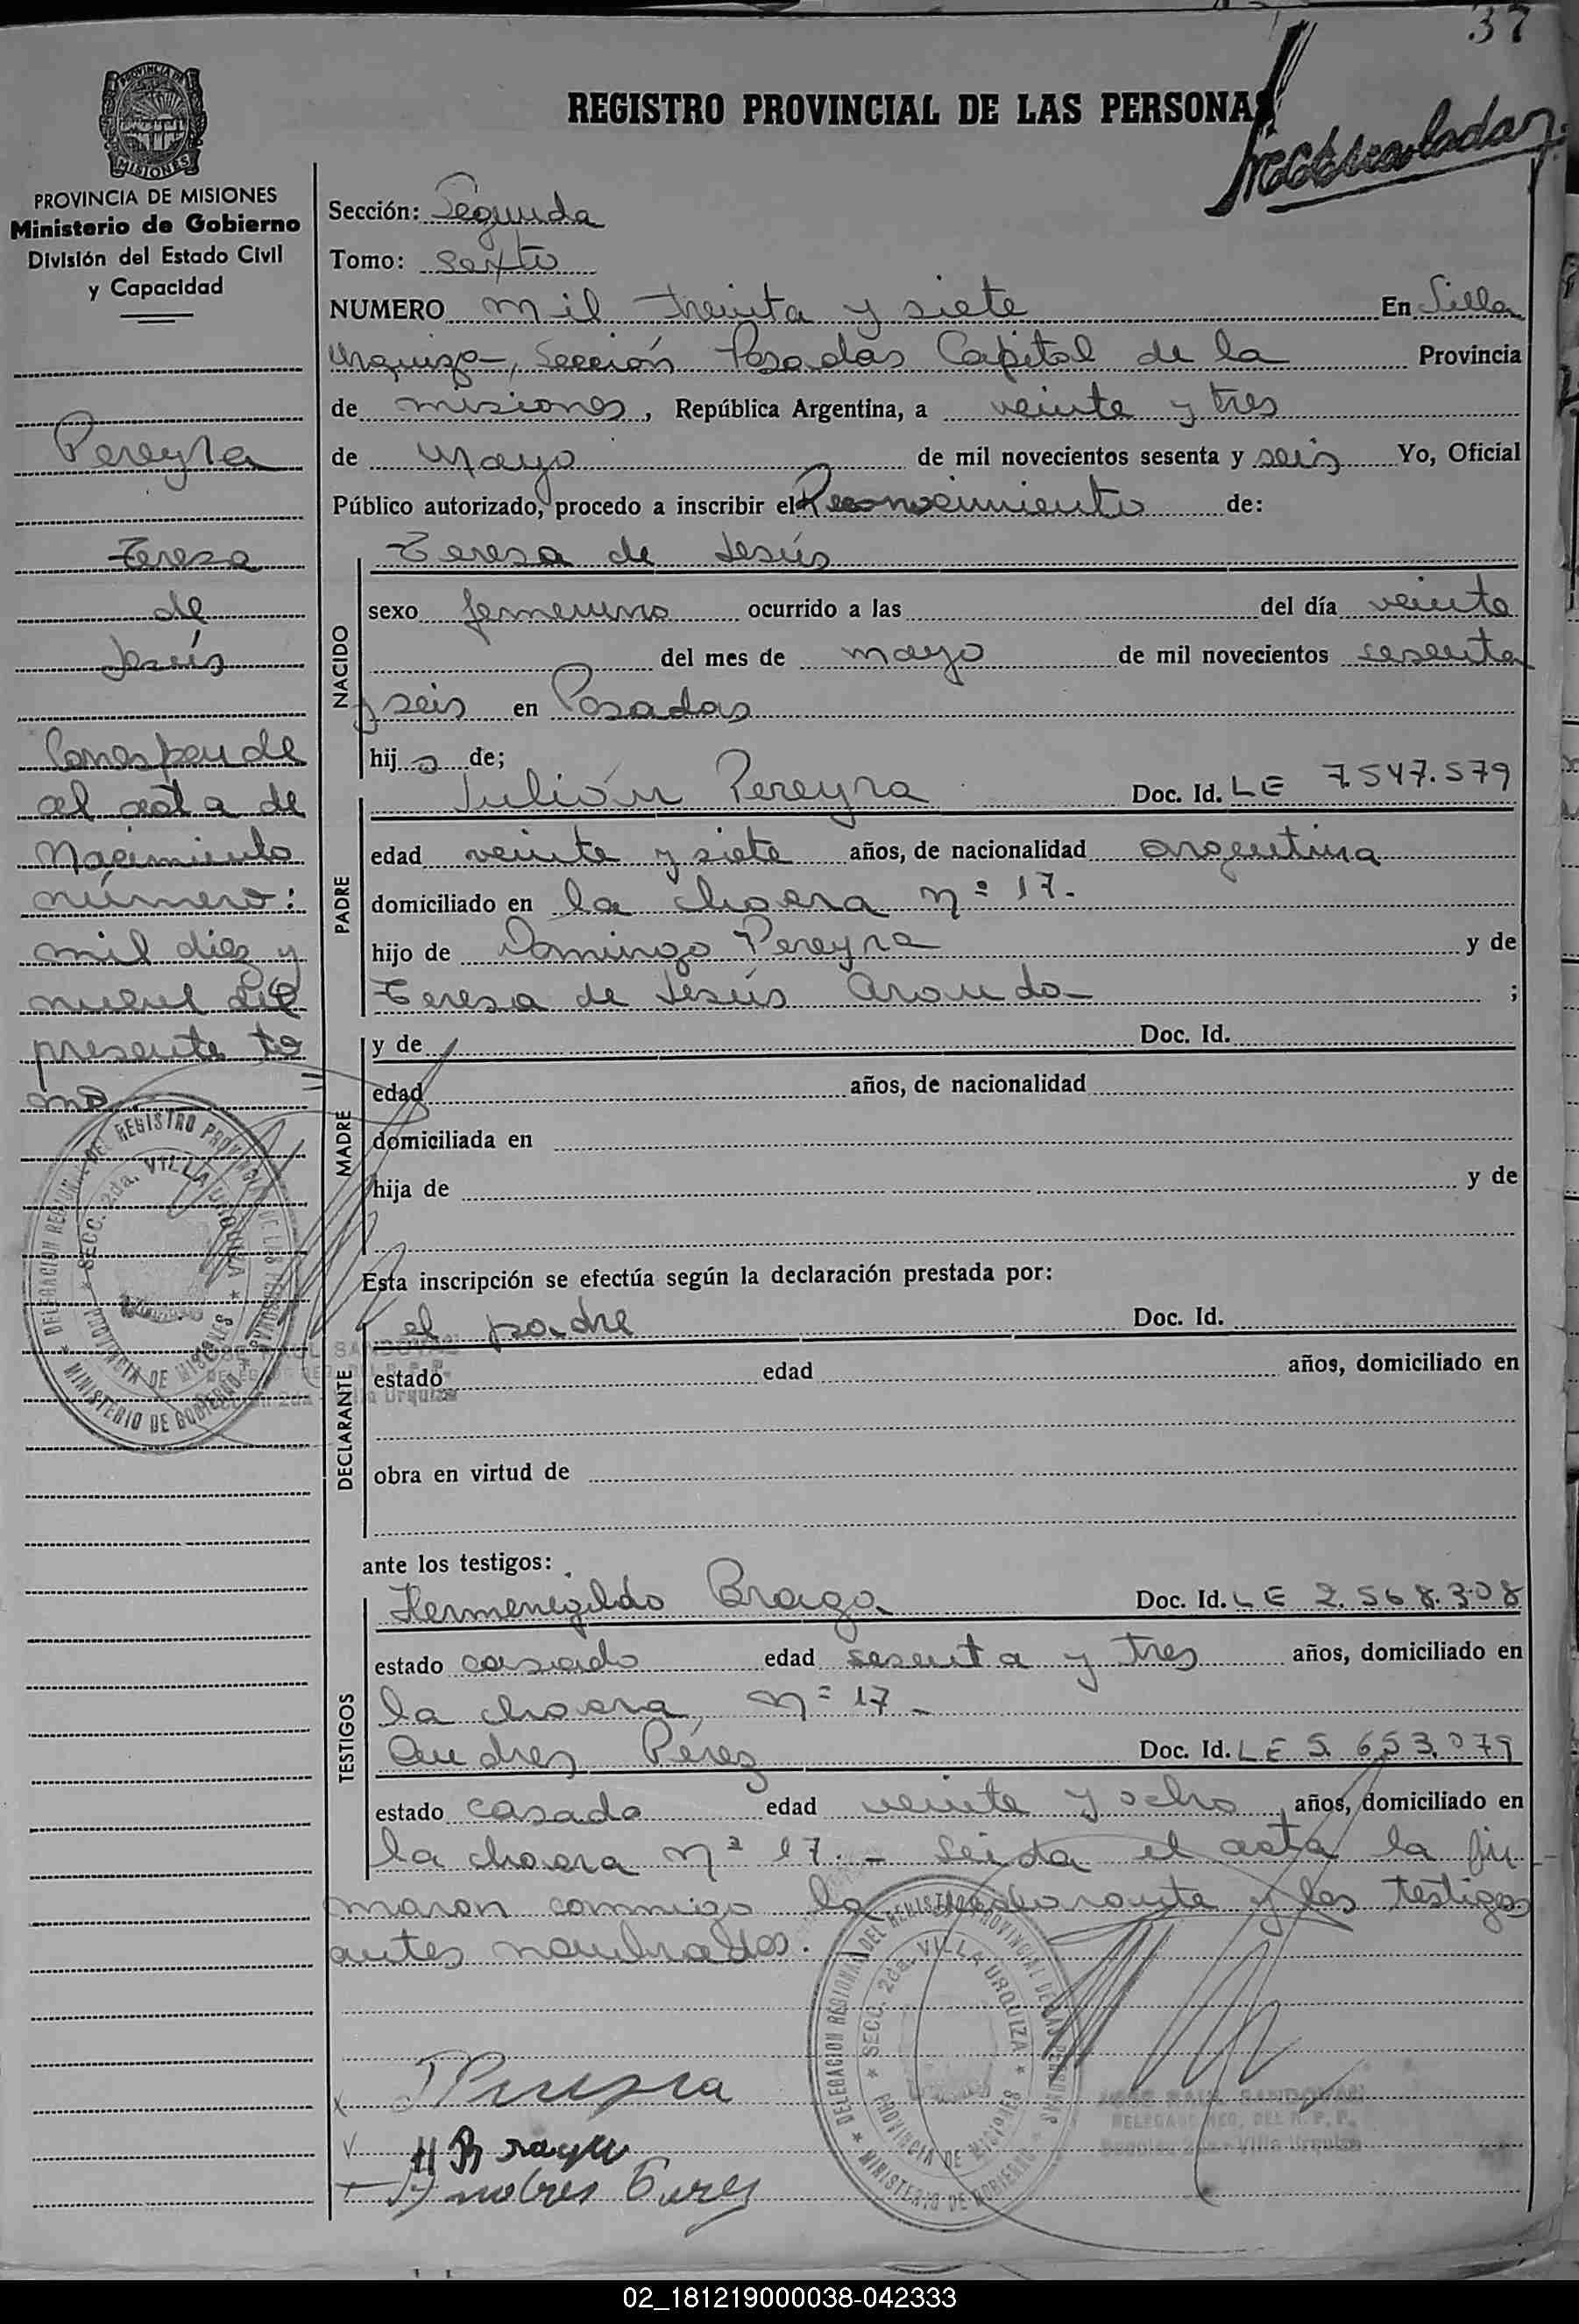 37
REGISTRO PROVINCIAL DE LAS PERSONAS
PROVINCIA DE MISIONES
PROVINCIA DE MISIONES
Ministerio de Gobierno
División del Estado Civil
y Capacidad
Pereyra
Tereza
de
Jesús
Corresponde
al acta de
Nacimiento
número:
mil diez y
nueve del
presente to
mo
DELEGACION REGIONAL DEL REGISTRO PROVINCIAL DE LAS PERSONAS
SECC. 2da. VILLA URQUIZA
PROVINCIA DE MISIONES
MINISTERIO DE GOBIERNO
Sección: Segunda
Tomo: Sexto
NUMERO mil treinta y siete En Villa
Urquiza, Sección Posadas Capital de la Provincia
de misiones, República Argentina, a veinte y tres
de Mayo de mil novecientos sesenta y seis Yo, Oficial
Público autorizado, procedo a inscribir el Reconocimiento de:
NACIDO
Teresa de Jesús
sexo femenino ocurrido a las del día veinte
del mes de mayo de mil novecientos sesenta
y seis en Posadas
hij a de;
PADRE
Julián Pereyra Doc. Id. LE 7.547.579
edad veinte y siete años, de nacionalidad argentina
domiciliado en la chacra nº 17.-
hijo de Domingo Pereyra y de
Teresa de Jesús Aranda ;
MADRE
y de Doc. Id.
edad años, de nacionalidad
domiciliada en
hija de y de
Esta inscripción se efectúa según la declaración prestada por:
DECLARANTE
el padre Doc. Id.
estado edad años, domiciliado en
obra en virtud de
ante los testigos:
TESTIGOS
Hermenegildo Braga Doc. Id. LE 2.568.308
estado casado edad sesenta y tres años, domiciliado en
la chacra, nº 17.-
Andres Pérez Doc. Id. LE 5.653.079
estado casado edad veinte y ocho años, domiciliado en
la chacra nº 17.- Leida el acta la fir
maron conmigo y los testigos
antes nombrados.
DELEGACION REGIONAL DEL REGISTRO PROVINCIAL DE LAS PERSONAS
SECC. 2da. VILLA URQUIZA
PROVINCIA DE MISIONES
MINISTERIO DE GOBIERNO
JOSE RAUL SANDOVAL
DELEGADO REG. DEL R. P. P.
Sección 2da - Villa Urquiza
J Pereyra
H Braga
Andres Perez
02_181219000038-042333